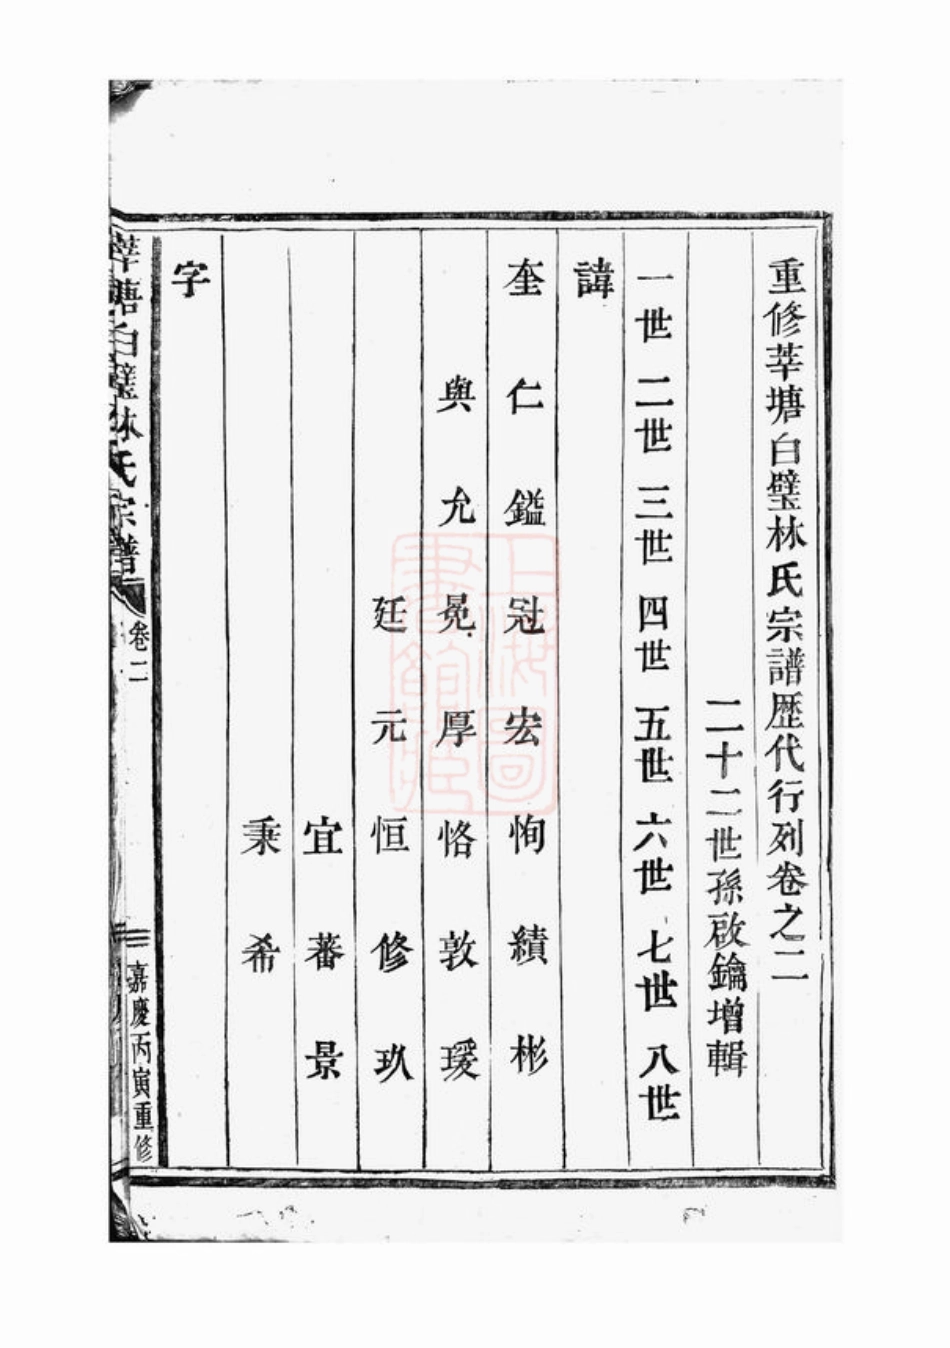 重修莘塘白璧林氏宗譜歷代行列卷之二
二十二世孫啟鑰增輯
一世 二世 三世 四世 五世 六世 七世 八世
諱
奎 仁 鎰 冠 宏 恂 績 彬
與 允 冕 厚 恪 敦 瑗
廷 元 恒 修 玖
宜 蕃 景
秉 希
字
莘塘白璧林氏宗譜 卷二 嘉慶丙寅重修
上海圖書館藏